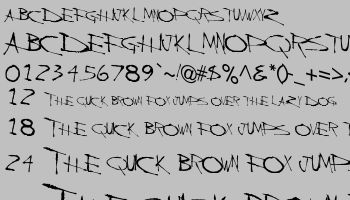 ABCDEFGHIJKLMNOPQRSTUVWXYZ
ABCDEFGHIJKLMNOPQRSTU
0123456789`~!@#$%^&*()-_+=>;
12 THE QUICK BROWN FOX JUMPS OVER THE LAZY DOG.
18 THE QUICK BROWN FOX JUMPS OVER T
24 THE QUICK BROWN FOX JUMPS
THE QUICK BROWN